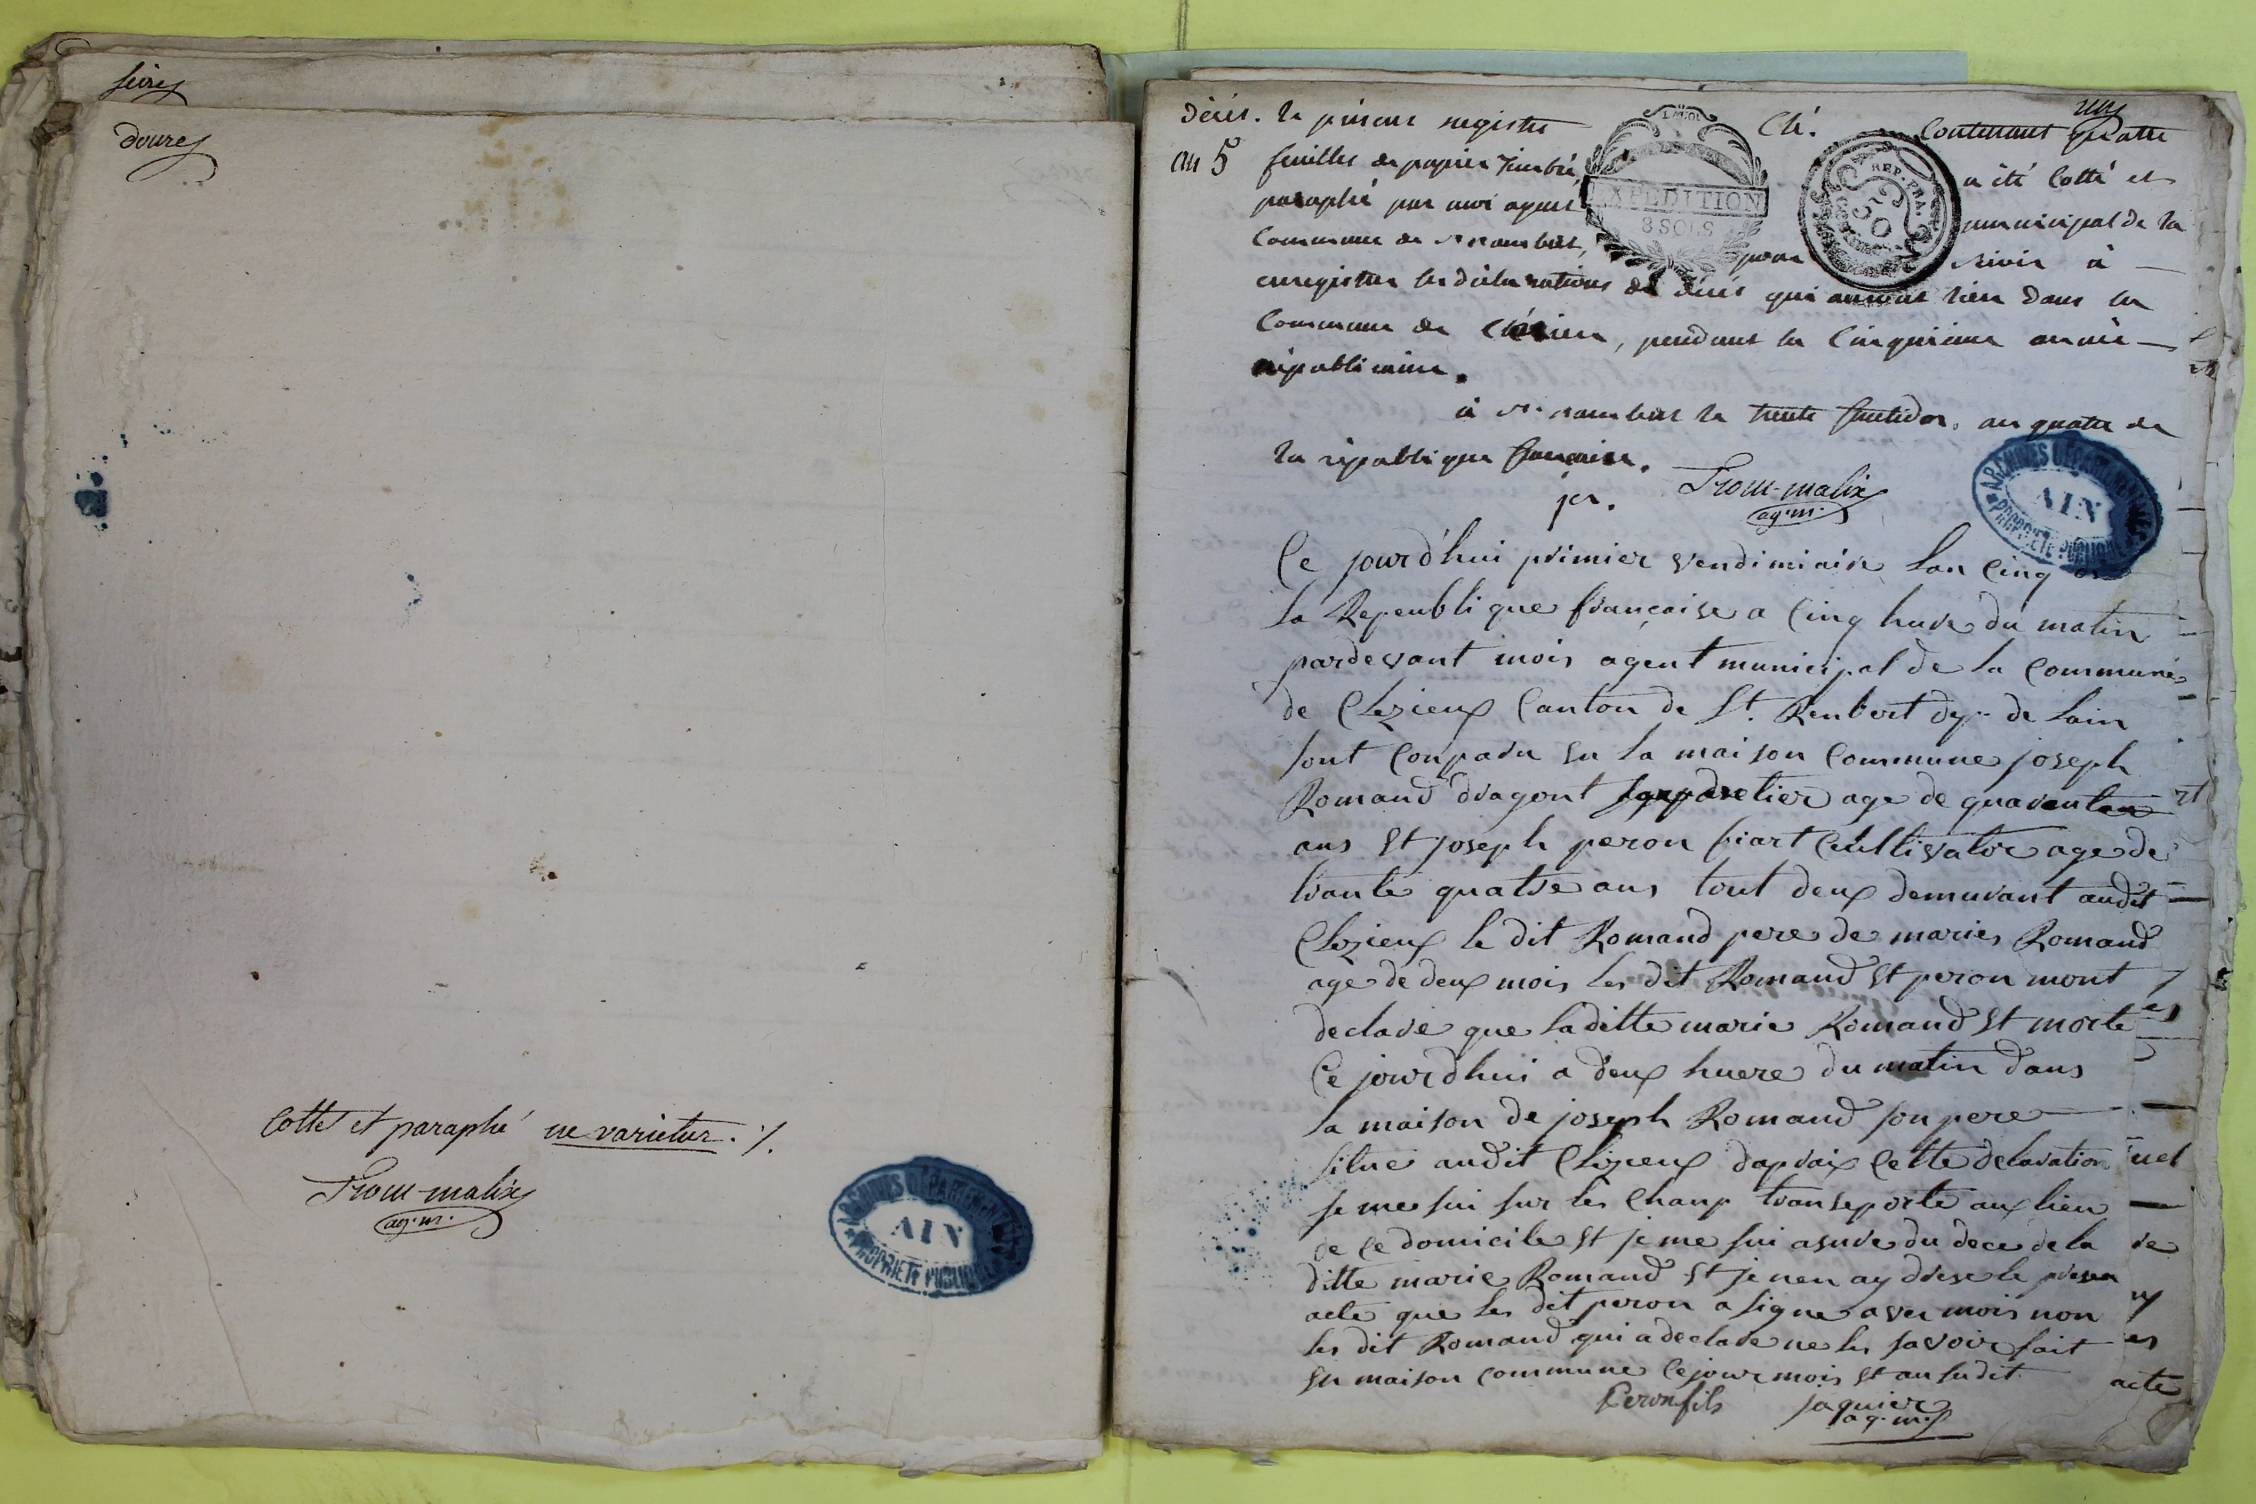 seize
douze
Cotté et paraphé ne varietur. /.
Trocu-malix
ag. m.
ARCHIVES DÉPARTEMENTALES
AIN
PROPRIÉTÉ PUBLIQUE
un
Décès. le présent registre Clé. contenant quatre
an 5 feuilles de papier timbré, a été Cotté et
paraphé par moi agent municipal de la
Commune de st rambert, pour servir à
EXPEDITION
8 SOLS
REP. FRA.
enregistrer les déclarations de décès qui auront lieu dans la
Commune de Clézieu, pendant la Cinquieme année
républicaine.
à st. rambert le trente fructidor, an quatre de
la république française.
Trocu-malix
ag. m.
ARCHIVES DÉPARTEMENTALES
AIN
PROPRIÉTÉ PUBLIQUE
jer.
Ce jourd'hui primier vendimiaire lan Cinq de
la Republique française a Cinq hure du matin
pardevant mois agent municipal de la Commune
de Clezieux Canton de St. Renbert dep. de lain
sont Conparu en la maison Commune joseph
Romand dragont age de quarente
ans et joseph peron fiart Cultivator age de
trante quatre ans tout deux demurant audit
Clezieux le dit Romand pere de marie Romand
age de deux mois les dit Romand et peron mont
declare que laditte marie Romand et morte
Ce jourd'hui a deux huere du matin dans
la maison de joseph Romand son pere
situe audit Clezieux dapraix Cette delaration
je me sui sur les Chanp transeporte aux lieu
de Ce domicile et je me sui asure du dece de la
ditte marie Romand et je nen ay drese le presen
acte que les dit peron a signe avec mois non
les dit Romand qui a declare ne les savoir fait
en maison commune Ce jour mois et an sudit
Peron fils jaquier
ag. m.
acte